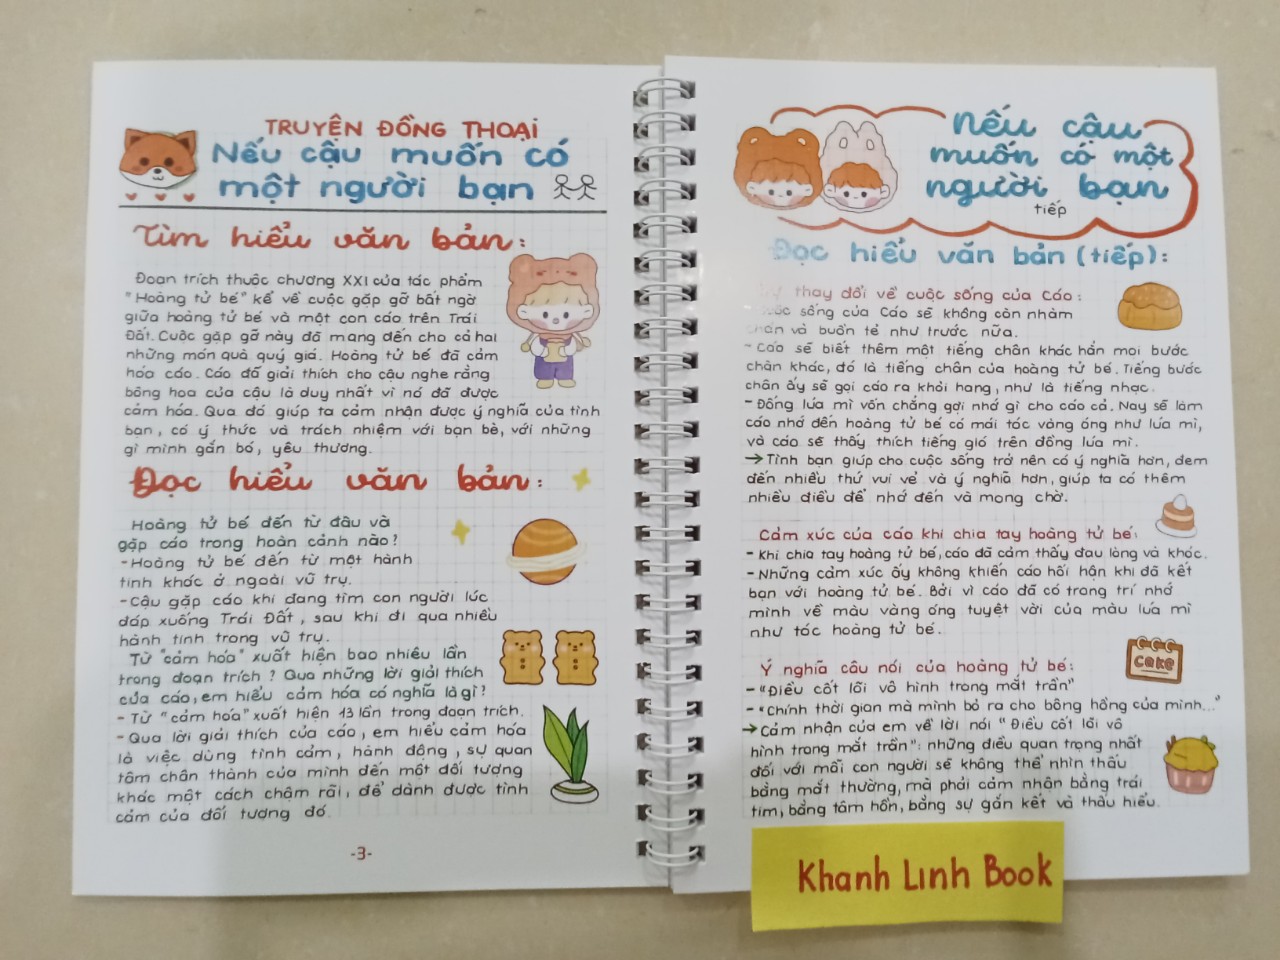 TRUYỆN ĐỒNG THOẠI
Nếu cậu muốn có
một người bạn
Tìm hiểu văn bản:
Đoạn trích thuộc chương XXI của tác phẩm
"Hoàng tử bé" kể về cuộc gặp gỡ bất ngờ
giữa hoàng tử bé và một con cáo trên Trái
Đất. Cuộc gặp gỡ này đã mang đến cho cả hai
những món quà quý giá. Hoàng tử bé đã cảm
hóa cáo. Cáo đã giải thích cho cậu nghe rằng
bông hoa của cậu là duy nhất vì nó đã được
cảm hóa. Qua đó giúp ta cảm nhận được ý nghĩa của tình
bạn, có ý thức và trách nhiệm với bạn bè, với những
gì mình gắn bó, yêu thương.
Đọc hiểu văn bản:
Hoàng tử bé đến từ đâu và
gặp cáo trong hoàn cảnh nào?
- Hoàng tử bé đến từ một hành
tinh khác ở ngoài vũ trụ.
- Cậu gặp cáo khi đang tìm con người lúc
đáp xuống Trái Đất, sau khi đi qua nhiều
hành tinh trong vũ trụ.
Từ "cảm hóa" xuất hiện bao nhiêu lần
trong đoạn trích? Qua những lời giải thích
của cáo, em hiểu cảm hóa có nghĩa là gì?
- Từ "cảm hóa" xuất hiện 13 lần trong đoạn trích.
- Qua lời giải thích của cáo, em hiểu cảm hóa
là việc dùng tình cảm, hành động, sự quan
tâm chân thành của mình đến một đối tượng
khác một cách chậm rãi, để dành được tình
cảm của đối tượng đó.
-3-
Nếu cậu
muốn có một
người bạn
tiếp
Đọc hiểu văn bản (tiếp):
thay đổi về cuộc sống của Cáo:
sống của Cáo sẽ không còn nhàm
chán và buồn tẻ như trước nữa.
- Cáo sẽ biết thêm một tiếng chân khác hẳn mọi bước
chân khác, đó là tiếng chân của hoàng tử bé. Tiếng bước
chân ấy sẽ gọi cáo ra khỏi hang, như là tiếng nhạc.
- Đồng lúa mì vốn chẳng gợi nhớ gì cho cáo cả. Nay sẽ làm
cáo nhớ đến hoàng tử bé có mái tóc vàng óng như lúa mì,
và cáo sẽ thấy thích tiếng gió trên đồng lúa mì.
→ Tình bạn giúp cho cuộc sống trở nên có ý nghĩa hơn, đem
đến nhiều thứ vui vẻ và ý nghĩa hơn, giúp ta có thêm
nhiều điều để nhớ đến và mong chờ.
Cảm xúc của cáo khi chia tay hoàng tử bé:
- Khi chia tay hoàng tử bé, cáo đã cảm thấy đau lòng và khóc.
- Những cảm xúc ấy không khiến cáo hối hận khi đã kết
bạn với hoàng tử bé. Bởi vì cáo đã có trong trí nhớ
mình về màu vàng óng tuyệt vời của màu lúa mì
như tóc hoàng tử bé.
cake
Ý nghĩa câu nói của hoàng tử bé:
- "Điều cốt lõi vô hình trong mắt trần"
- "Chính thời gian mà mình bỏ ra cho bông hồng của mình..."
→ Cảm nhận của em về lời nói "Điều cốt lõi vô
hình trong mắt trần": những điều quan trọng nhất
đối với mỗi con người sẽ không thể nhìn thấu
bằng mắt thường, mà phải cảm nhận bằng trái
tim, bằng tâm hồn, bằng sự gắn kết và thấu hiểu.
Khanh Linh Book